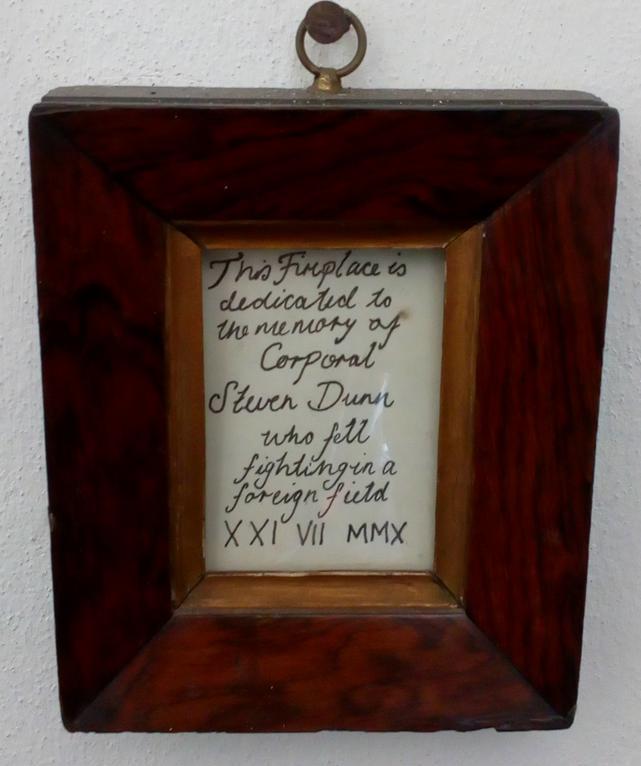 This Fireplace is
dedicated to
the memory of
Corporal
Steven Dunn
who fell
fighting in a
foreign field
XXI VII MMX